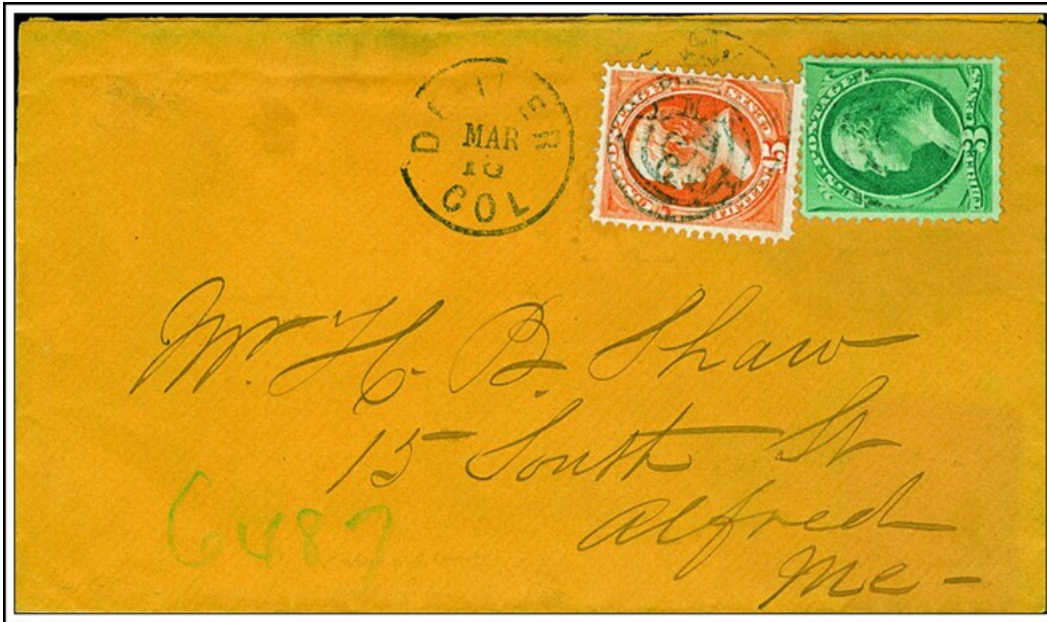 DENVER
MAR
10
COL
U.S. POSTAGE
FIFTEEN
15
CENTS
U.S. POSTAGE
THREE
3
CENTS
Mr. H. B. Shaw
15 South St
Alfred
Me -
6487